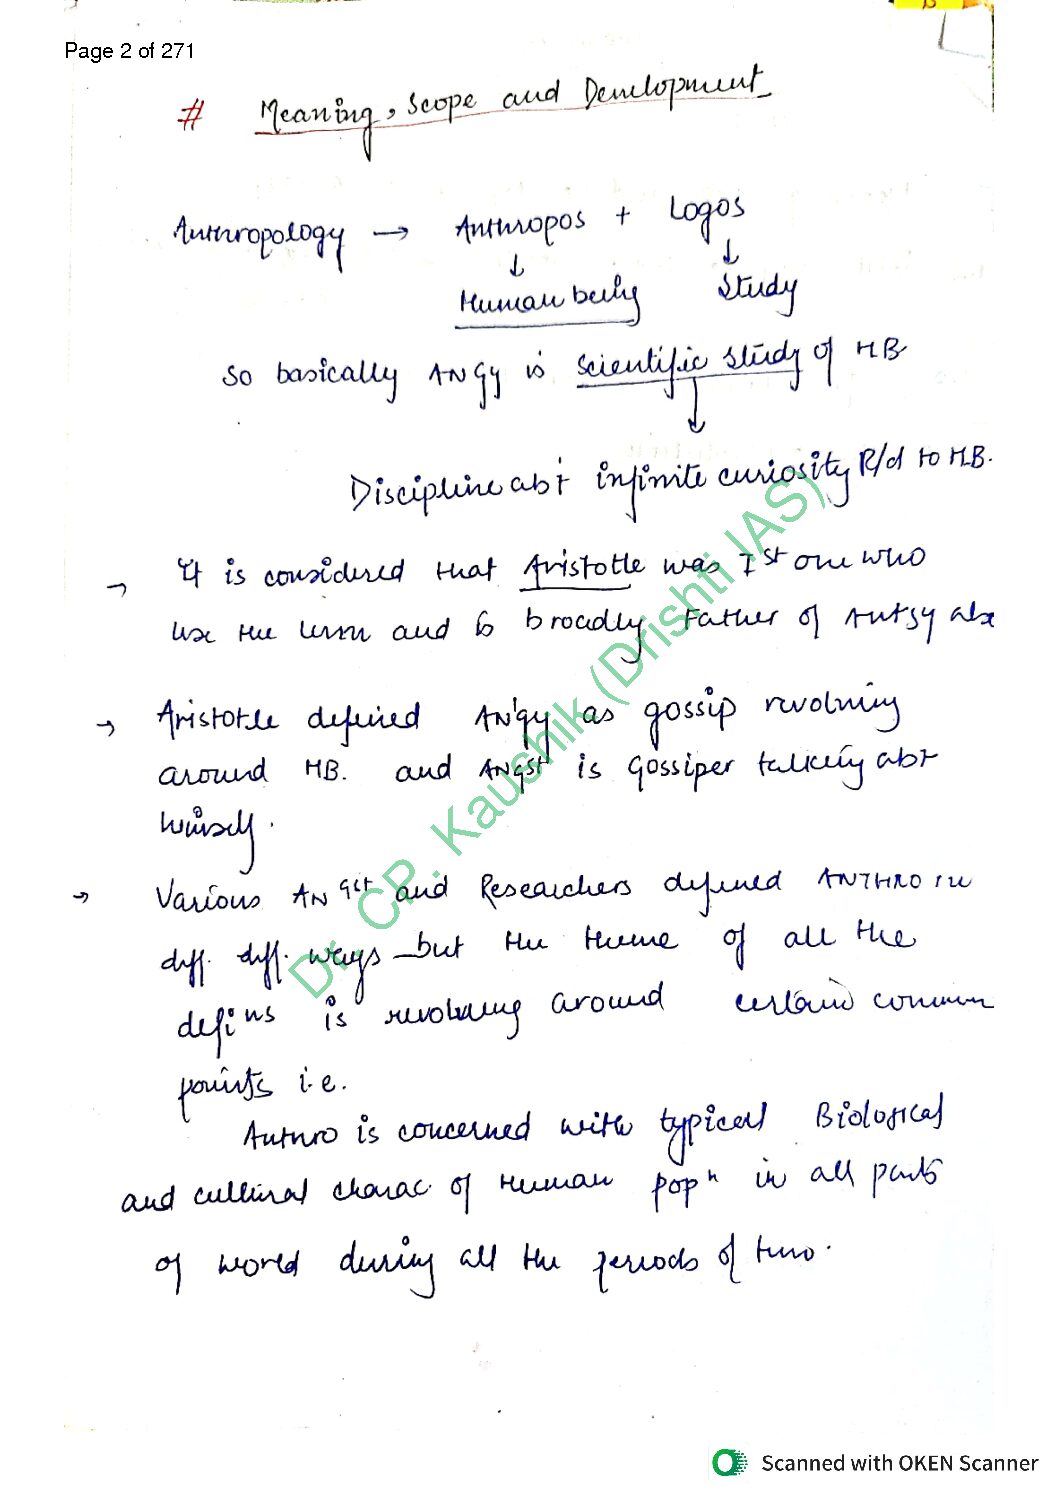 Page 2 of 271
# Meaning, Scope and Development
Anthropology → Anthropos + Logos
↓ ↓
Human being Study
So basically ANGy is scientific study of HB
↓
Discipline abt infinite curiosity R/d to HB.
→ It is considered that Aristotle was Ist one who
use the term and is broadly Father of Antgy also
→ Aristotle defined AN'gy as gossip revolving
around HB. and ANGst is Gossiper talking abt
himself.
→ Various ANgst and Researchers defined ANTHRO in
diff. diff. ways but the theme of all the
defins is revolving around certain common
points i.e.
Anthro is concerned with typical Biological
and cultural charac. of Human popn in all parts
of world during all the periods of time.
Dr. CP. Kaushik (Drishti IAS)
Scanned with OKEN Scanner